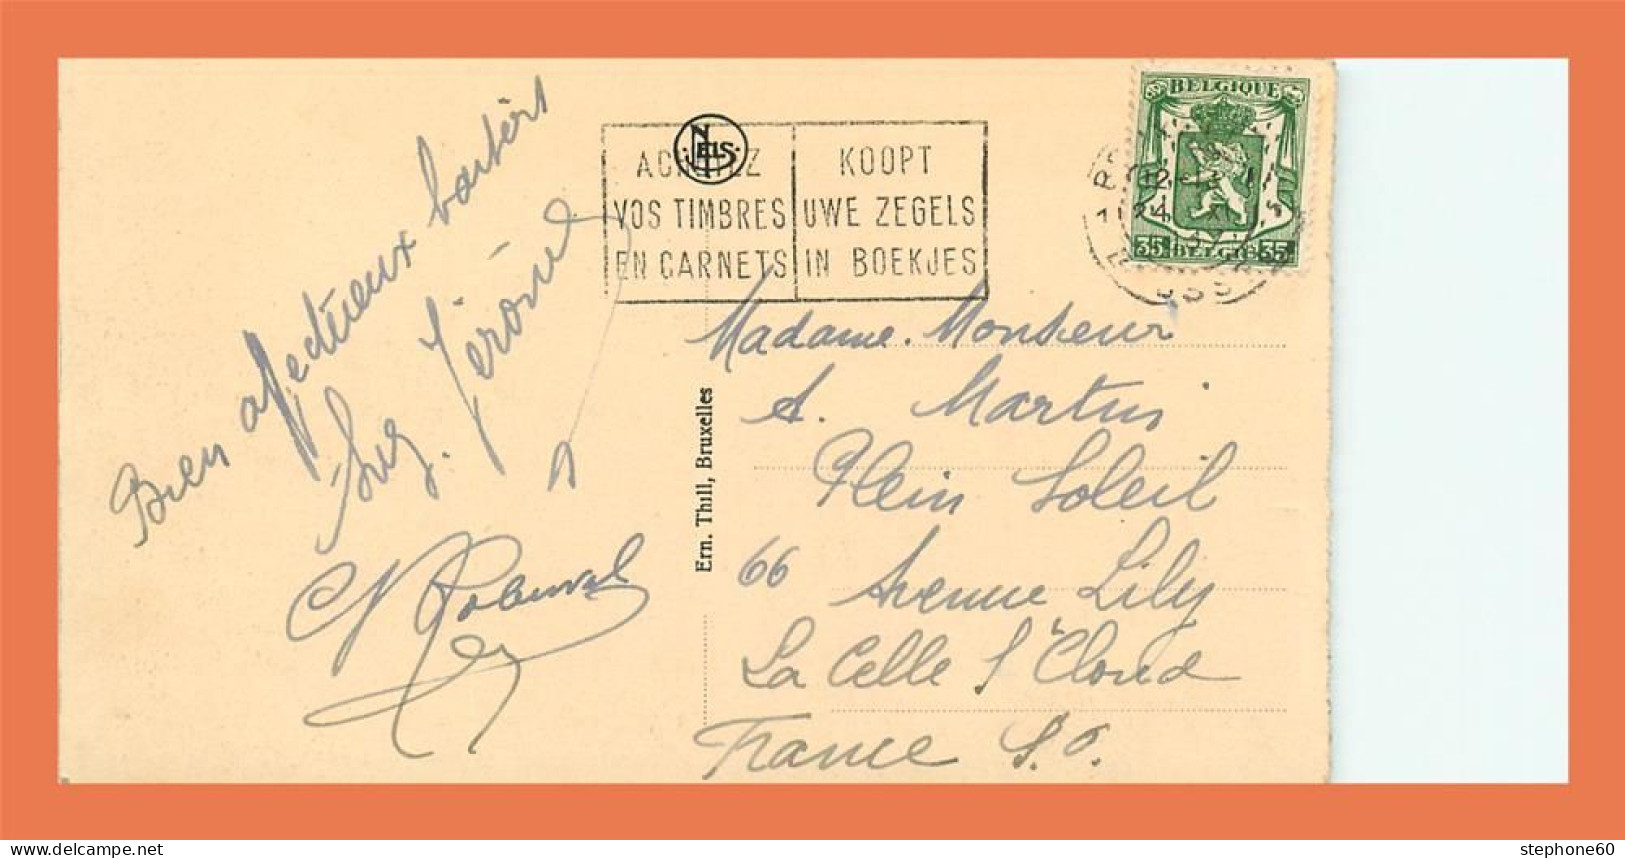 Bien affectueux baisers
Suz. Jérôme
NELS
ACHETEZ
VOS TIMBRES
EN CARNETS
KOOPT
UWE ZEGELS
IN BOEKJES
BELGIQUE
35 BELGIE 35
12
24
Ern. Thill, Bruxelles
Madame. Monsieur
A. Martin
Plein Soleil
66 Avenue Lily
La Celle St Cloud
France S.O.
stephone60